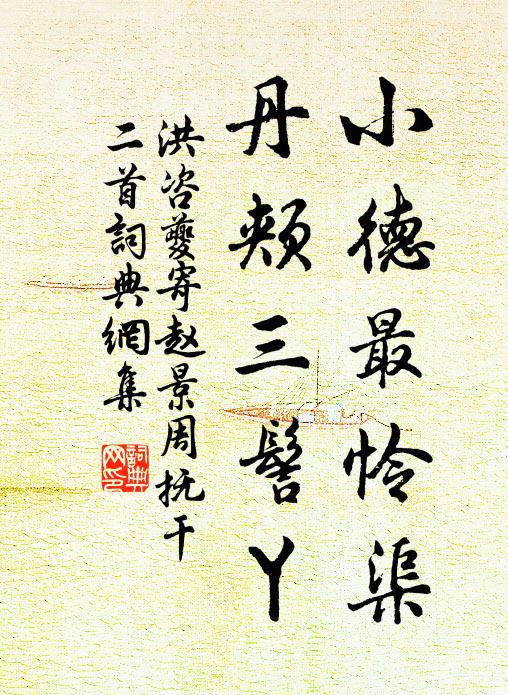 小德最怜渠
丹颊三髻丫
洪咨夔寄赵景周抚干
二首詞典網集
詞典
网印